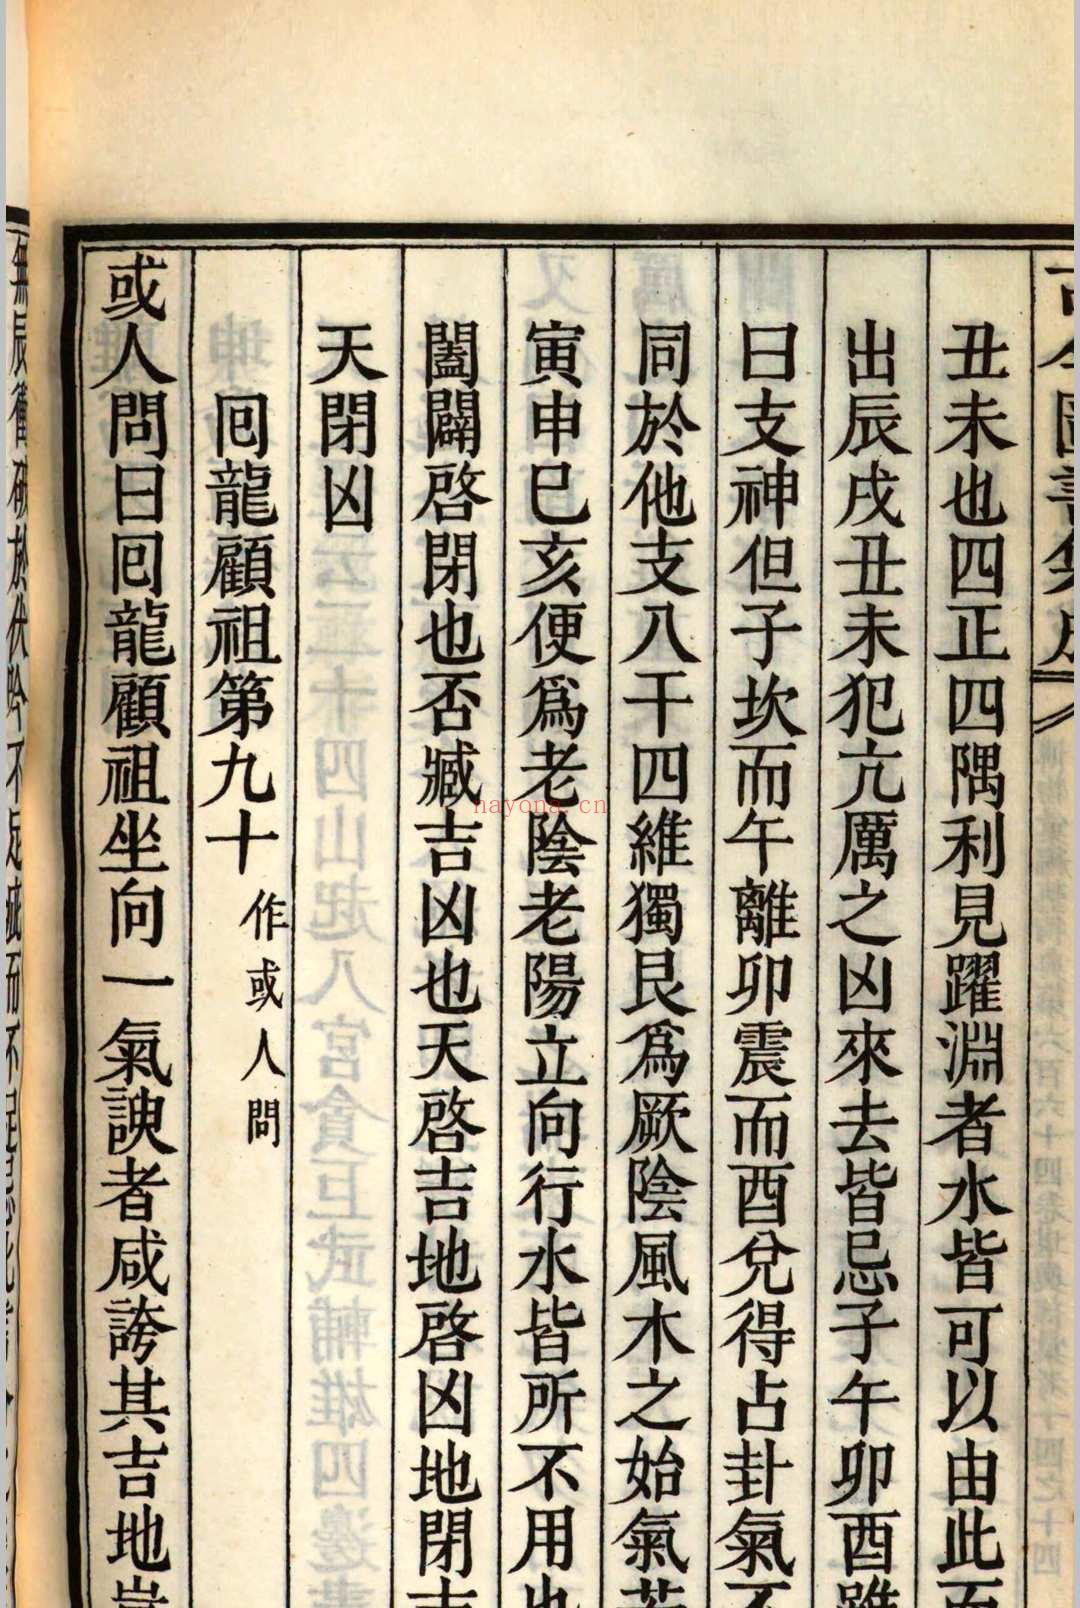 古今圖書集成
丑未也四正四隅利見躍淵者水皆可以由此而
出辰戌丑未犯亢厲之凶來去皆忌子午卯酉雖
曰支神但子坎而午離卯震而酉兌得占卦氣不
同於他支八干四維獨艮為厥陰風木之始氣若
寅申巳亥便為老陰老陽立向行水皆所不用也
闔闢啓閉也否臧吉凶也天啓吉地啓凶地閉吉
天閉凶
回龍顧祖第九十 作或人問
或人問曰回龍顧祖坐向一氣諛者咸誇其吉地豈
nayona.cn